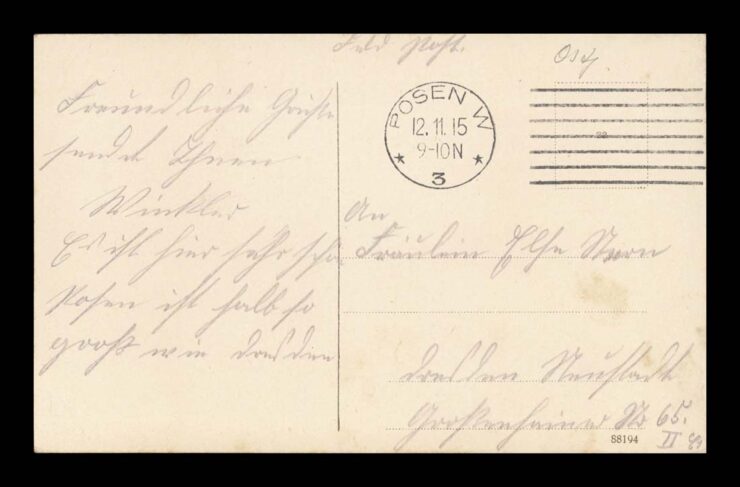 Feld Post.
POSEN W
12.11.15
9-10N
* 3 *
Freundliche Grüße
sendet Ihnen
Winkler
Es ist hier sehr schön
Posen ist halb so
groß wie Dresden
An
Fräulein Else Stern
Dresden Neustadt
Großenhainer Str 65.
II
88194